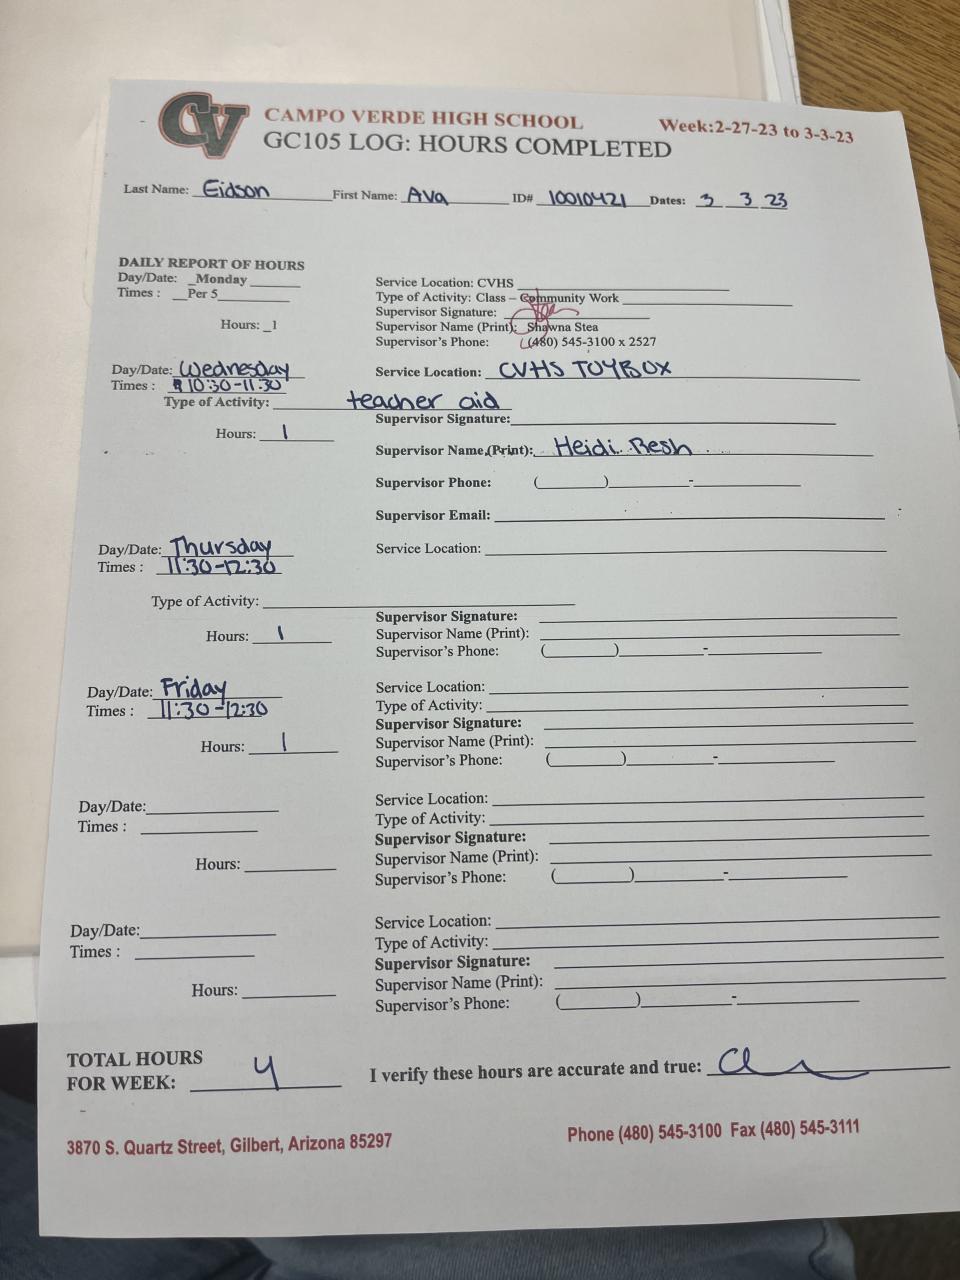 CV
CAMPO VERDE HIGH SCHOOL
Week:2-27-23 to 3-3-23
GC105 LOG: HOURS COMPLETED
Last Name: Eidson First Name: Ava ID# 10010421 Dates: 3 3 23
DAILY REPORT OF HOURS
Day/Date: _Monday
Service Location: CVHS
Times : __Per 5
Type of Activity: Class – Community Work
Supervisor Signature:
Hours: _1
Supervisor Name (Print): Shawna Stea
Supervisor's Phone: (480) 545-3100 x 2527
Day/Date: Wednesday
Service Location: CVHS TOYBOX
Times : 10:30-11:30
Type of Activity: teacher aid
Supervisor Signature:
Hours: 1
Supervisor Name (Print): Heidi Resh
Supervisor Phone: ( ) -
Supervisor Email:
Day/Date: Thursday
Service Location:
Times : 11:30-12:30
Type of Activity:
Supervisor Signature:
Hours: 1
Supervisor Name (Print):
Supervisor's Phone: ( ) -
Day/Date: Friday
Service Location:
Times : 11:30-12:30
Type of Activity:
Supervisor Signature:
Hours: 1
Supervisor Name (Print):
Supervisor's Phone: ( ) -
Day/Date:
Service Location:
Times :
Type of Activity:
Supervisor Signature:
Hours:
Supervisor Name (Print):
Supervisor's Phone: ( ) -
Day/Date:
Service Location:
Times :
Type of Activity:
Supervisor Signature:
Hours:
Supervisor Name (Print):
Supervisor's Phone: ( ) -
TOTAL HOURS
FOR WEEK: 4
I verify these hours are accurate and true:
3870 S. Quartz Street, Gilbert, Arizona 85297
Phone (480) 545-3100 Fax (480) 545-3111